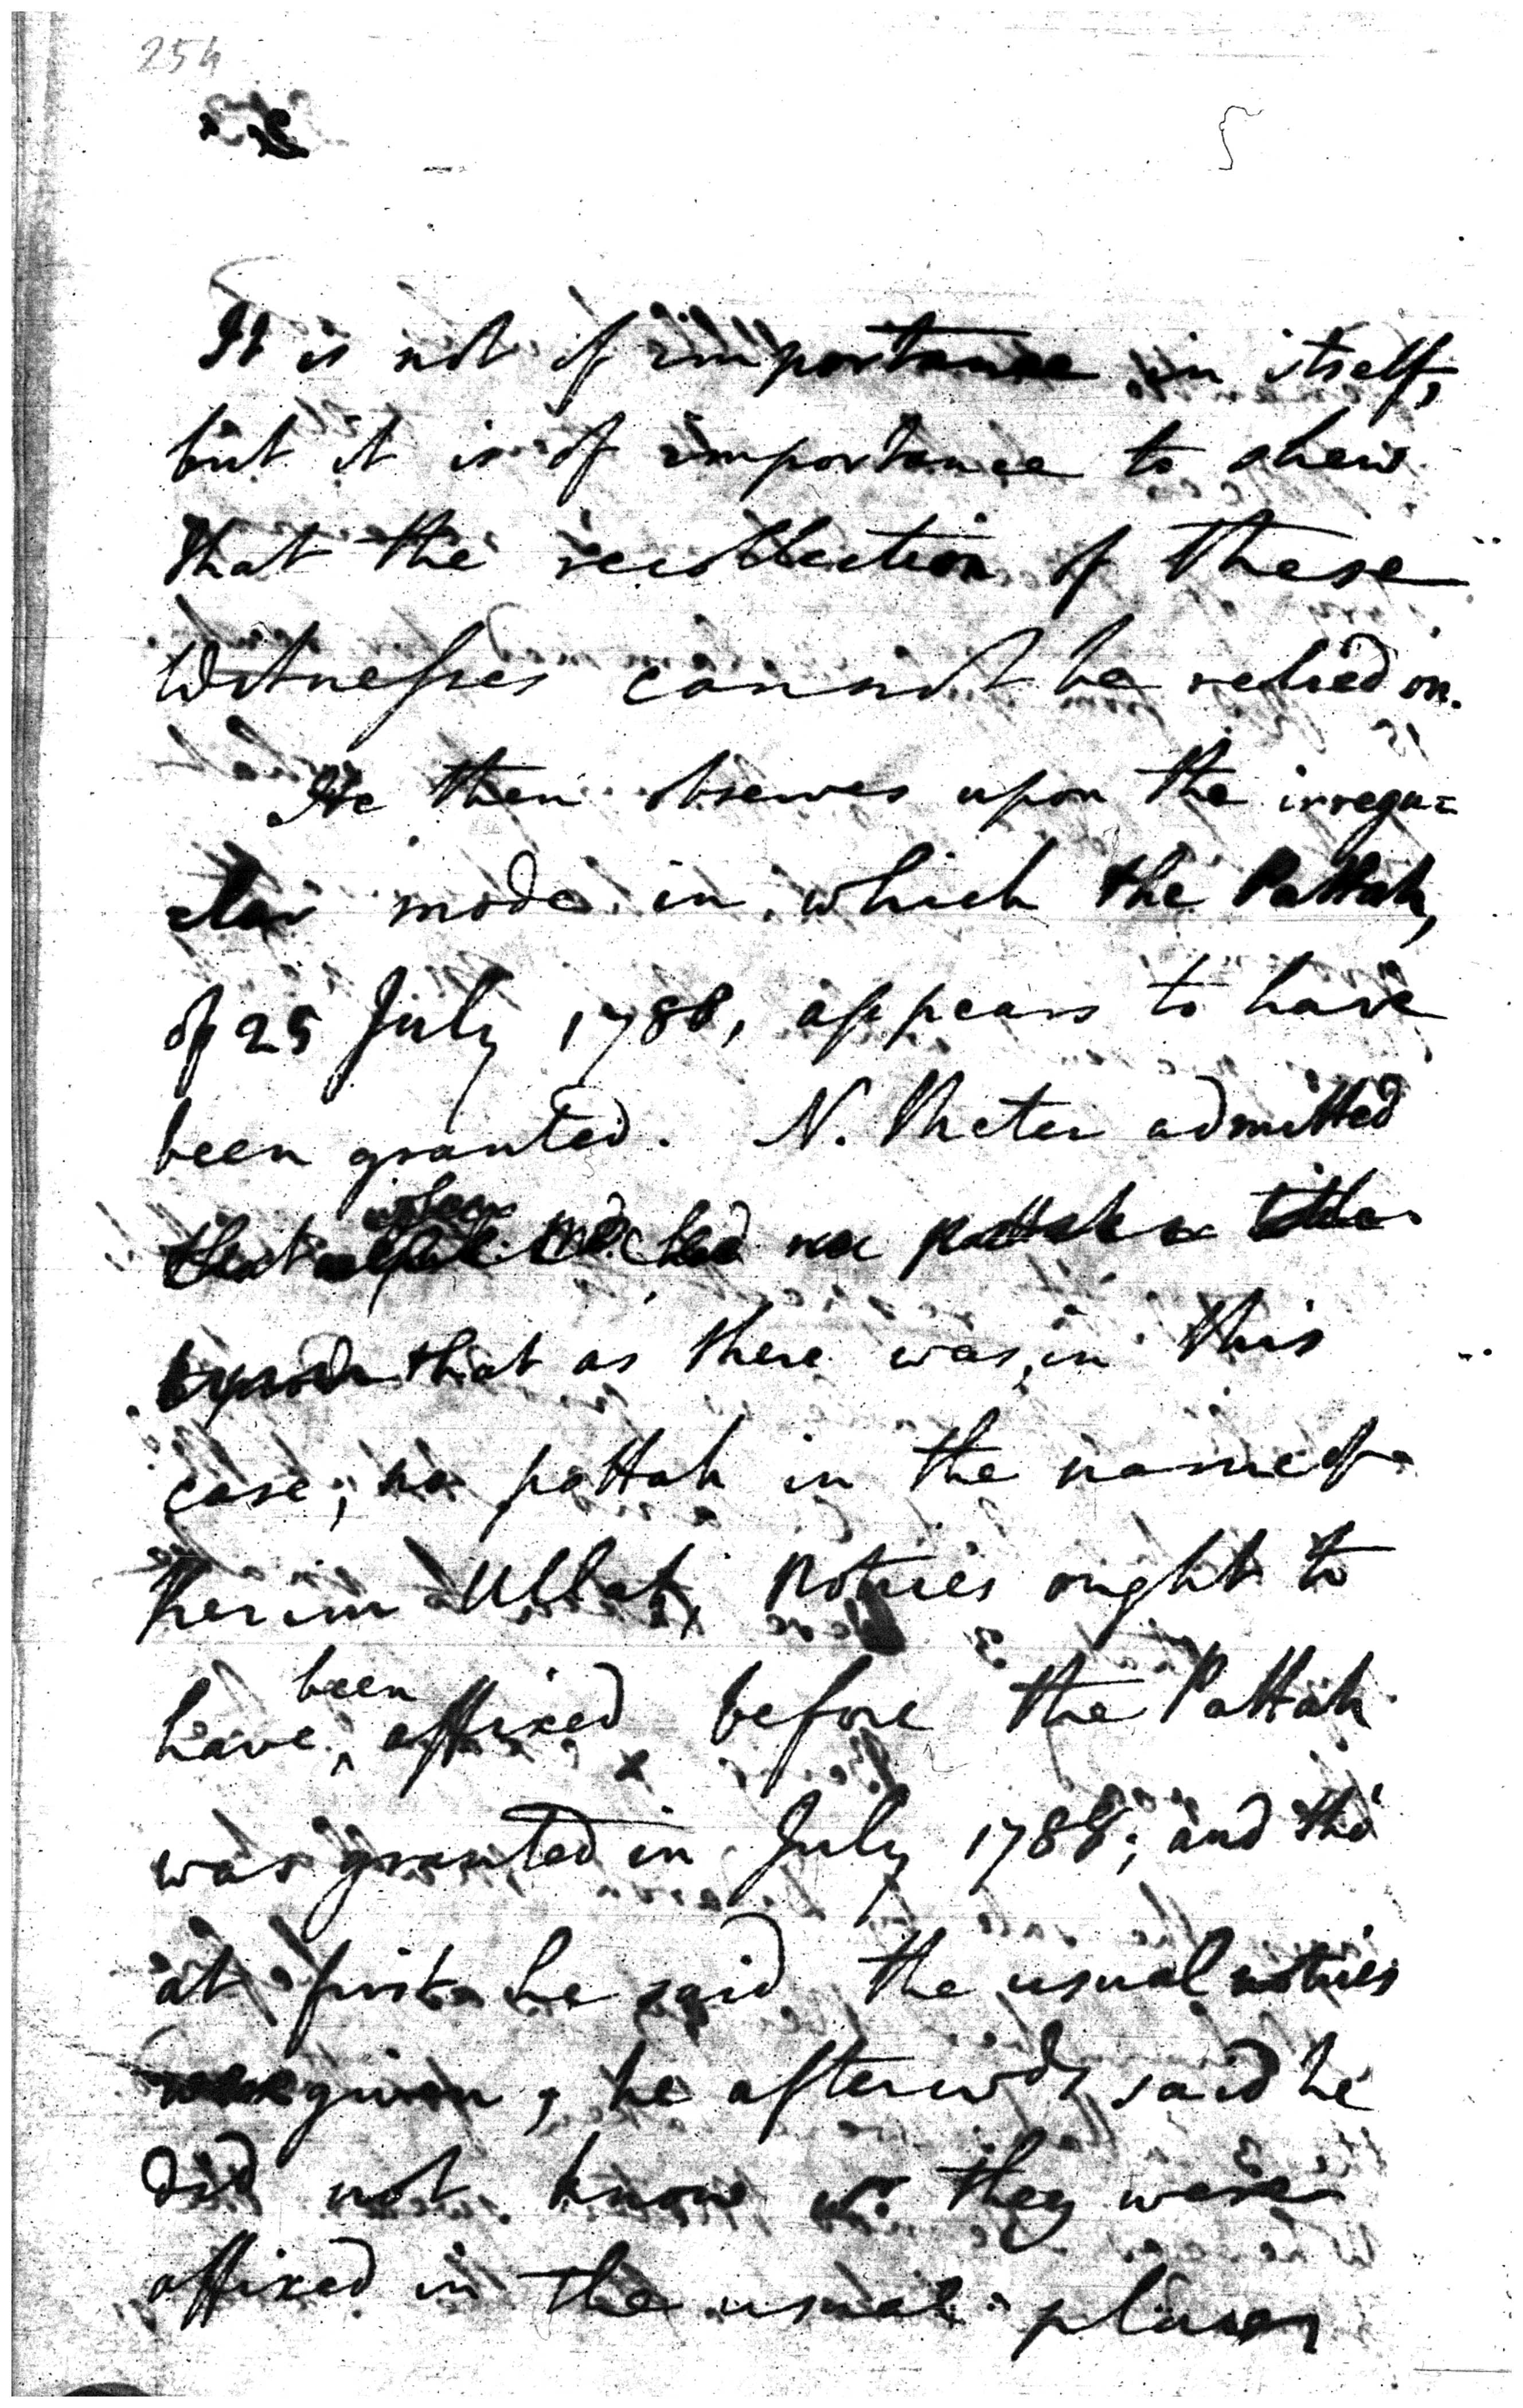 254
It is not of importance in itself,
but it is of importance to shew
that the recollection of these
Witnesses cannot be relied on.
He then observes upon the irregu=
=lar mode in which the Pattah,
of 25 July 1788, appears to have
been granted. N. admitted
that
that as there was, in this
case, no pattah in the name of
Kerim Ullah, notices ought to
been
have ^ affixed before the Pattah
x
was granted in July 1788; and tho'
at first he said the usual notices
were given, he afterwds said he
did not know wr. they were
affixed in the usual places